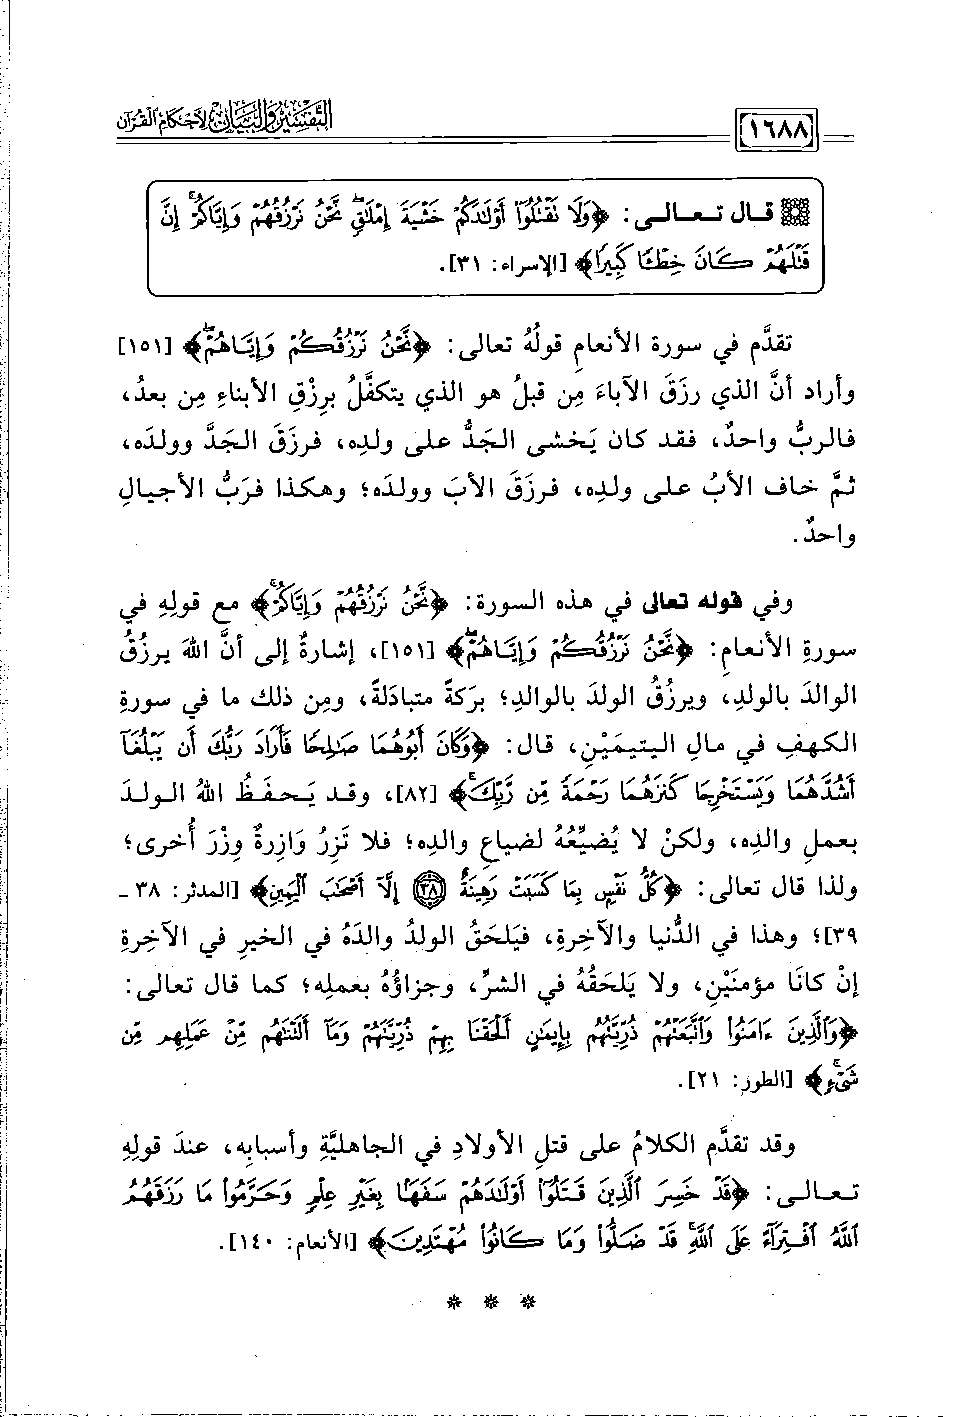 التفسير والبيان لأحكام القرآن
[١٦٨٨]
قال تعالى: ﴿وَلَا نَقْتُلُوٓا۟ أَوْلَٰدَكُمْ خَشْيَةَ إِمْلَٰقٍ ۖ نَّحْنُ نَرْزُقُهُمْ وَإِيَّاكُمْ ۚ إِنَّ
قَتْلَهُمْ كَانَ خِطْـًٔا كَبِيرًا﴾ [الإسراء: ٣١].
تقدَّم في سورة الأنعامِ قولُهُ تعالى: ﴿نَّحْنُ نَرْزُقُكُمْ وَإِيَّاهُمْ ۖ﴾ [١٥١]
وأراد أنَّ الذي رزَقَ الآباءَ مِن قبلُ هو الذي يتكفَّلُ برِزْقِ الأبناءِ مِن بعدُ،
فالربُّ واحدٌ، فقد كان يَخشى الجَدُّ على ولدِه، فرزَقَ الجَدَّ وولَدَه،
ثمَّ خاف الأبُ على ولدِه، فرزَقَ الأبَ وولدَه؛ وهكذا فرَبُّ الأجيالِ
واحدٌ.
وفي قوله تعالى في هذه السورة: ﴿نَّحْنُ نَرْزُقُهُمْ وَإِيَّاكُمْ ۚ﴾ مع قولِهِ في
سورةِ الأنعامِ: ﴿نَّحْنُ نَرْزُقُكُمْ وَإِيَّاهُمْ ۖ﴾ [١٥١]، إشارةٌ إلى أنَّ اللهَ يرزُقُ
الوالدَ بالولدِ، ويرزُقُ الولدَ بالوالدِ؛ بركةً متبادَلةً، ومِن ذلك ما في سورةِ
الكهفِ في مالِ اليتيمَيْنِ، قال: ﴿وَكَانَ أَبُوهُمَا صَٰلِحًا فَأَرَادَ رَبُّكَ أَن يَبْلُغَآ
أَشُدَّهُمَا وَيَسْتَخْرِجَا كَنزَهُمَا رَحْمَةً مِّن رَّبِّكَ ۚ﴾ [٨٢]، وقد يَحفَظُ اللهُ الولدَ
بعملِ والدِه، ولكنْ لا يُضيِّعُهُ لضياعِ والدِه؛ فلا تَزِرُ وَازِرةٌ وِزْرَ أُخرى؛
ولذا قال تعالى: ﴿كُلُّ نَفْسٍۭ بِمَا كَسَبَتْ رَهِينَةٌ ٣٨ إِلَّآ أَصْحَٰبَ ٱلْيَمِينِ﴾ [المدثر: ٣٨ ـ
٣٩]؛ وهذا في الدُّنيا والآخِرةِ، فيَلحَقُ الولدُ والدَهُ في الخيرِ في الآخِرةِ
إنْ كانَا مؤمنَيْنِ، ولا يَلحَقُهُ في الشرِّ، وجزاؤُهُ بعملِه؛ كما قال تعالى:
﴿وَٱلَّذِينَ ءَامَنُوا۟ وَٱتَّبَعَتْهُمْ ذُرِّيَّتُهُم بِإِيمَٰنٍ أَلْحَقْنَا بِهِمْ ذُرِّيَّتَهُمْ وَمَآ أَلَتْنَٰهُم مِّنْ عَمَلِهِم مِّن
شَىْءٍ ۚ﴾ [الطور: ٢١].
وقد تقدَّم الكلامُ على قتلِ الأولادِ في الجاهليَّةِ وأسبابِه، عندَ قولِهِ
تعالى: ﴿قَدْ خَسِرَ ٱلَّذِينَ قَتَلُوٓا۟ أَوْلَٰدَهُمْ سَفَهًۢا بِغَيْرِ عِلْمٍ وَحَرَّمُوا۟ مَا رَزَقَهُمُ
ٱللَّهُ ٱفْتِرَآءً عَلَى ٱللَّهِ ۚ قَدْ ضَلُّوا۟ وَمَا كَانُوا۟ مُهْتَدِينَ﴾ [الأنعام: ١٤٠].
* * *